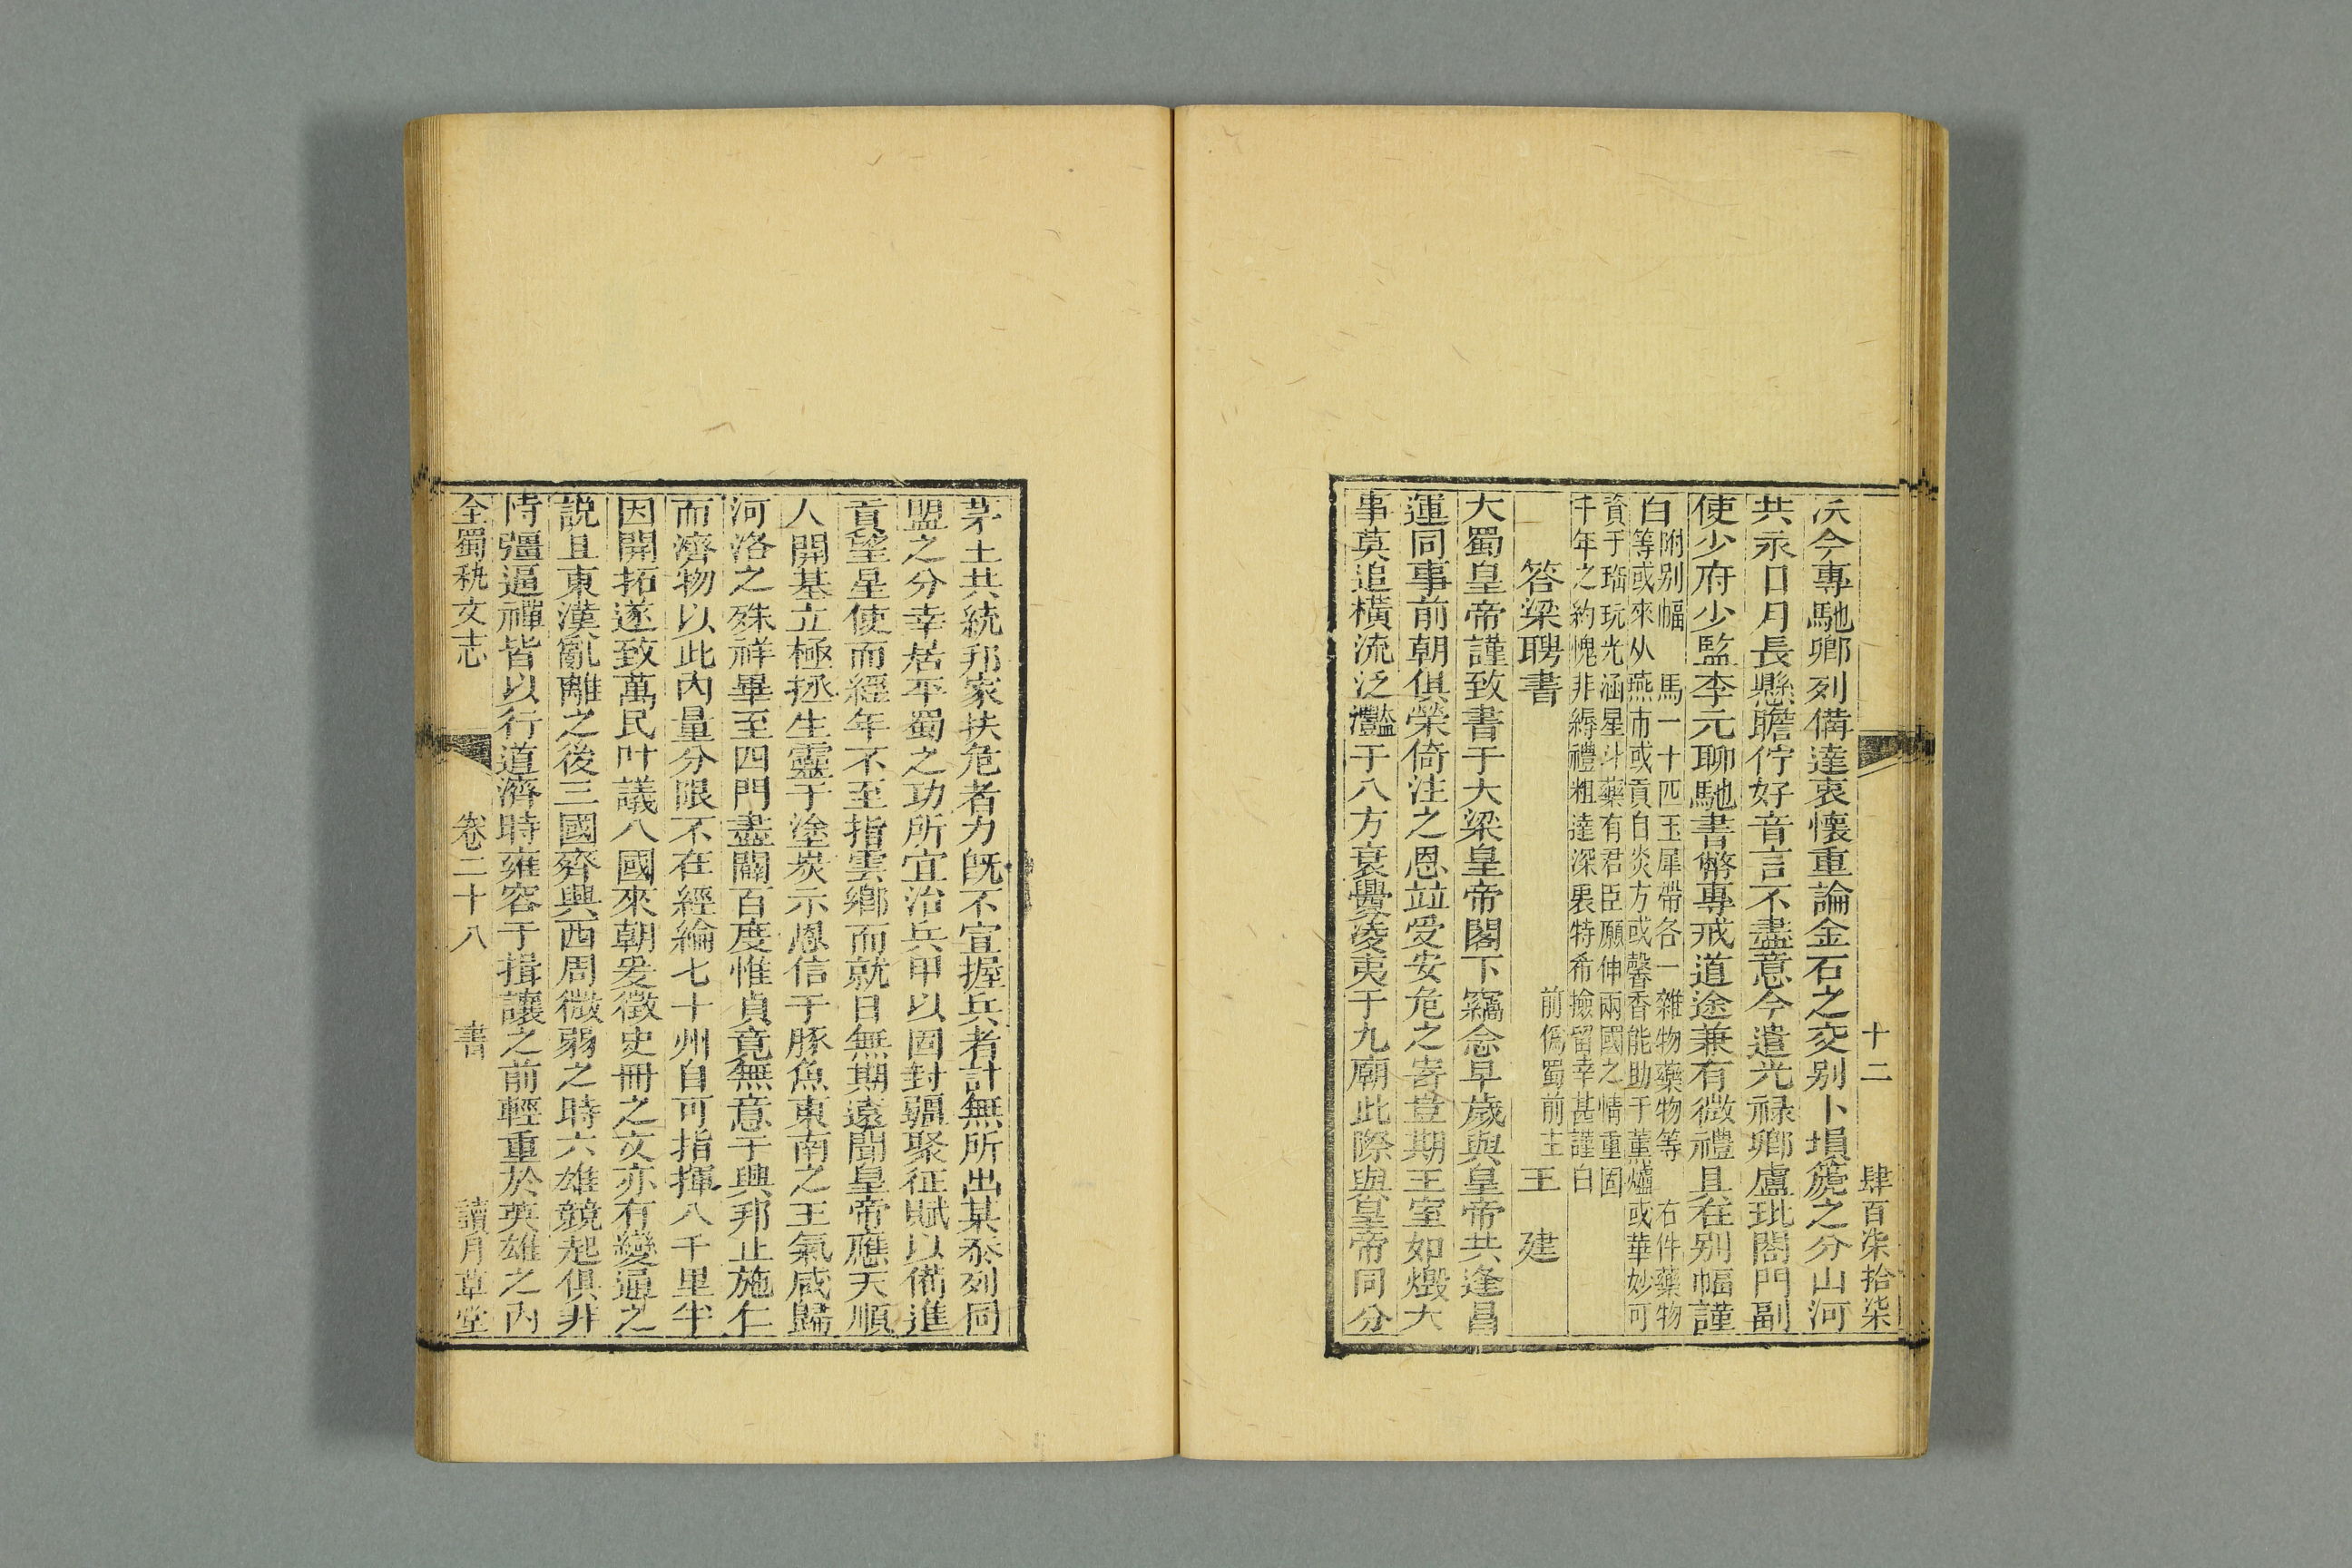 十二 肆百柒拾柒
沃今專馳鄉列備達衷懷重論金石之交别卜塤篪之分山河
共永日月長懸瞻佇好音言不盡意今遣光祿卿盧玭閤門副
使少府少監李元聊馳書幣專戒道途兼有微禮且在别幅謹
白
附别幅 馬一十匹玉犀帶各一雜物藥物等 右件藥物
等或來从燕市或貢自炎方或馨香能助于薰爐或華妙可
資于瑶玩光涵星斗藥有君臣願伸兩國之情重固
千年之約愧非縟禮粗達深衷特希撿留幸甚謹白
答梁聘書 前僞蜀前主 王建
大蜀皇帝謹致書于大梁皇帝閣下竊念早歲與皇帝共逢昌
運同事前朝俱榮倚注之恩竝受安危之寄豈期王室如燬大
事莫追橫流泛灩于八方衰釁凌夷于九廟此際與皇帝同分
茅土共統邦家扶危者力旣不宣握兵者計無所出某忝列同
盟之分幸居平蜀之功所宜治兵甲以固封疆聚征賦以備進
貢望星使而經年不至指雲鄉而就日無期遠聞皇帝應天順
人開基立極拯生靈于塗炭示恩信于豚魚東南之王氣咸歸
河洛之殊祥畢至四門盡闢百度惟貞竟無意于興邦止施仁
而濟物以此內量分限不在經綸七十州自可指揮八千里半
因開拓遂致萬民叶議八國來朝爰徵史冊之文亦有變通之
説且東漢亂離之後三國齊興西周微弱之時六雄競起俱非
恃彊逼禪皆以行道濟時雍容于揖讓之前輕重於英雄之內
全蜀秇文志 卷二十八 書 讀月草堂